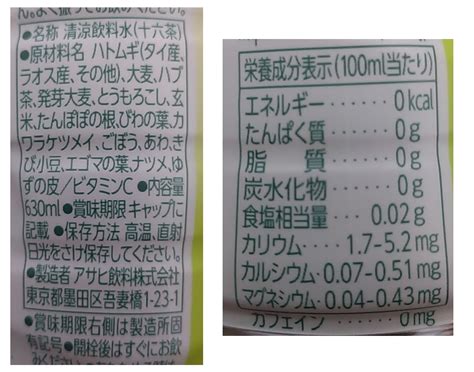 ん。よく振ってお飲みください。
●名称 清涼飲料水(十六茶)
●原材料名 ハトムギ(タイ産、
ラオス産、その他)、大麦、ハブ
茶、発芽大麦、とうもろこし、玄
米、たんぽぽの根、びわの葉、カ
ワラケツメイ、ごぼう、あわ、き
び、小豆、エゴマの葉、ナツメ、ゆ
ずの皮/ビタミンC ●内容量
630ml ●賞味期限 キャップに
記載 ●保存方法 高温、直射
日光をさけ保存してください。
●製造者 アサヒ飲料株式会社
東京都墨田区吾妻橋1-23-1
●賞味期限右側は製造所固
有記号 ●開栓後はすぐにお飲
みください
栄養成分表示(100ml当たり)
エネルギー……0kcal
たんぱく質……0g
脂質……0g
炭水化物……0g
食塩相当量…0.02g
カリウム…1.7-5.2mg
カルシウム…0.07-0.51mg
マグネシウム…0.04-0.43mg
カフェイン……0mg